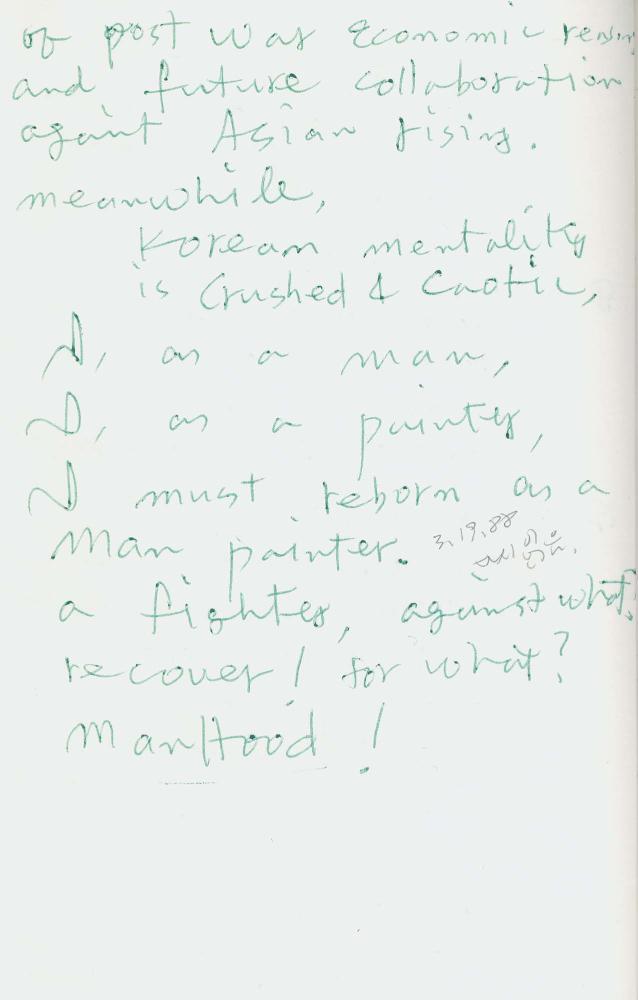 of post war Economic
and future collaboration
againt Asian rising.
meanwhile,
Korean mentality
is Crushed & Caotic,
I, as a man,
I, as a painter,
I must reborn as a
Man painter. 3.19.88
다시 읽음.
a fighter, against what?
recover! for what?
ManHood!